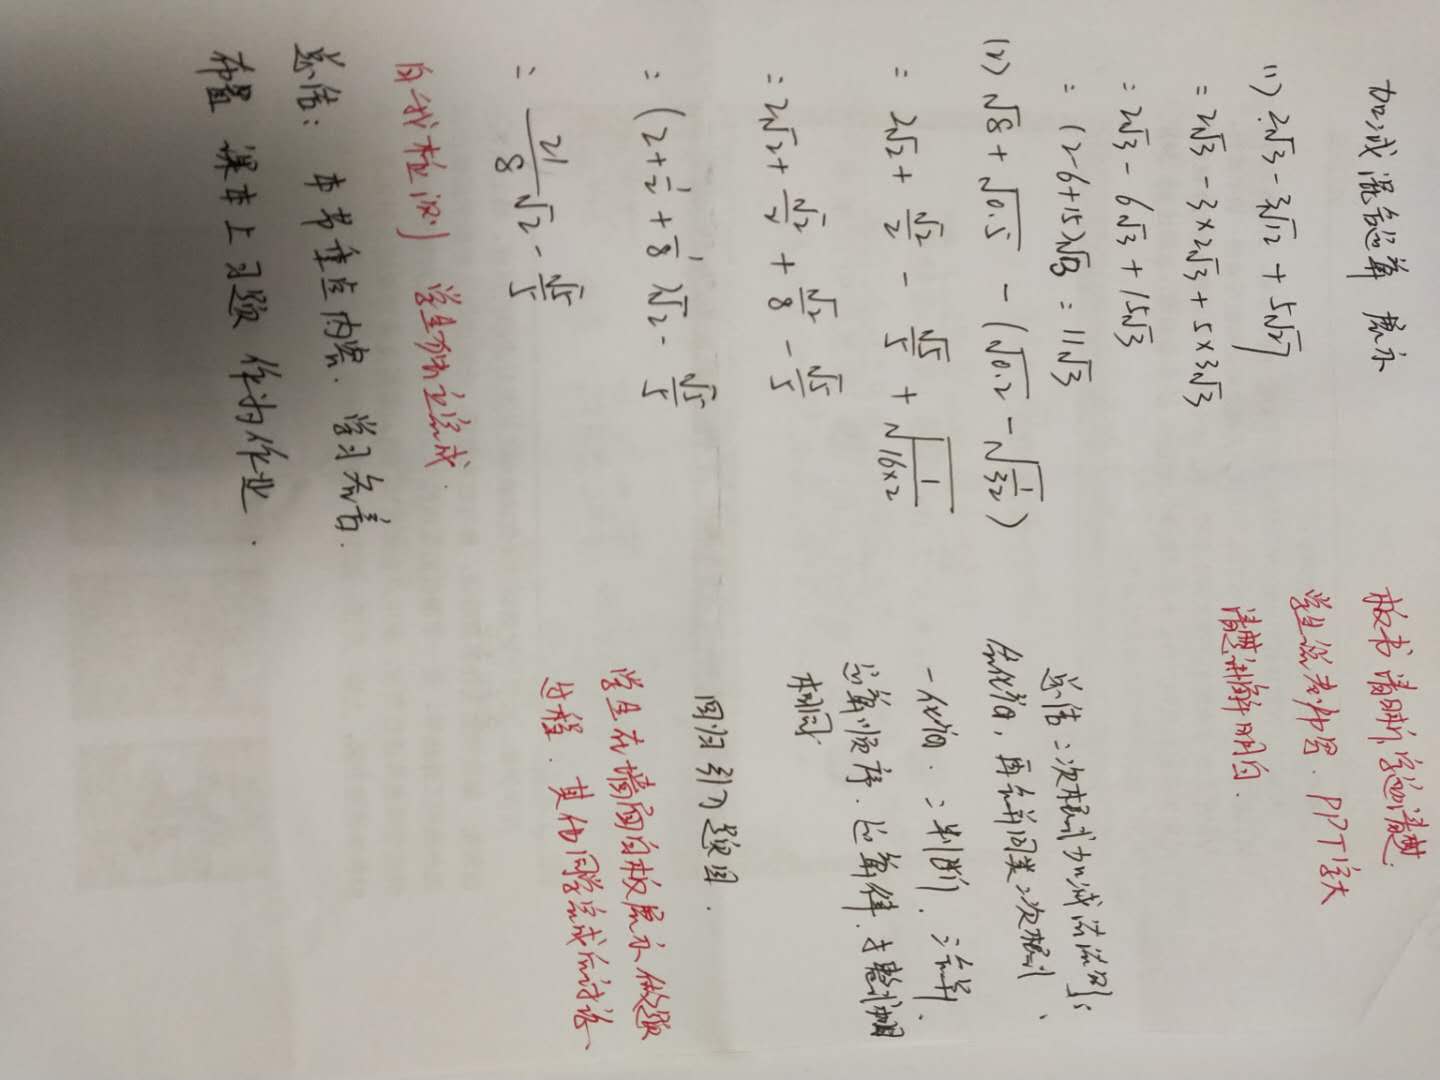 加减混合运算 展示
(1) 2√3 - 3√12 + 5√27
= 2√3 - 3×2√3 + 5×3√3
= 2√3 - 6√3 + 15√3
= (2-6+15)√3 = 11√3
(2) √8 + √0.5 - (√0.2 - √(1/32))
= 2√2 + √2/2 - √5/5 + √(1/(16×2))
= 2√2 + √2/2 + √2/8 - √5/5
= (2 + 1/2 + 1/8)√2 - √5/5
= 21/8 √2 - √5/5
自我检测 学生独立完成.
总结: 本节重点内容. 学习
布置 课本上习题 作为作业.
板书清晰
学生 PPT字大
清楚 讲解明白.
总结: 二次根式加减法法则:
先化简, 再合并同类二次根式.
一化简. 二判断. 三合并.
运算顺序. 运算律. 与整式
相同.
回归引入题目.
学生在墙面白板展示做题
过程. 其他同学完成后讨论